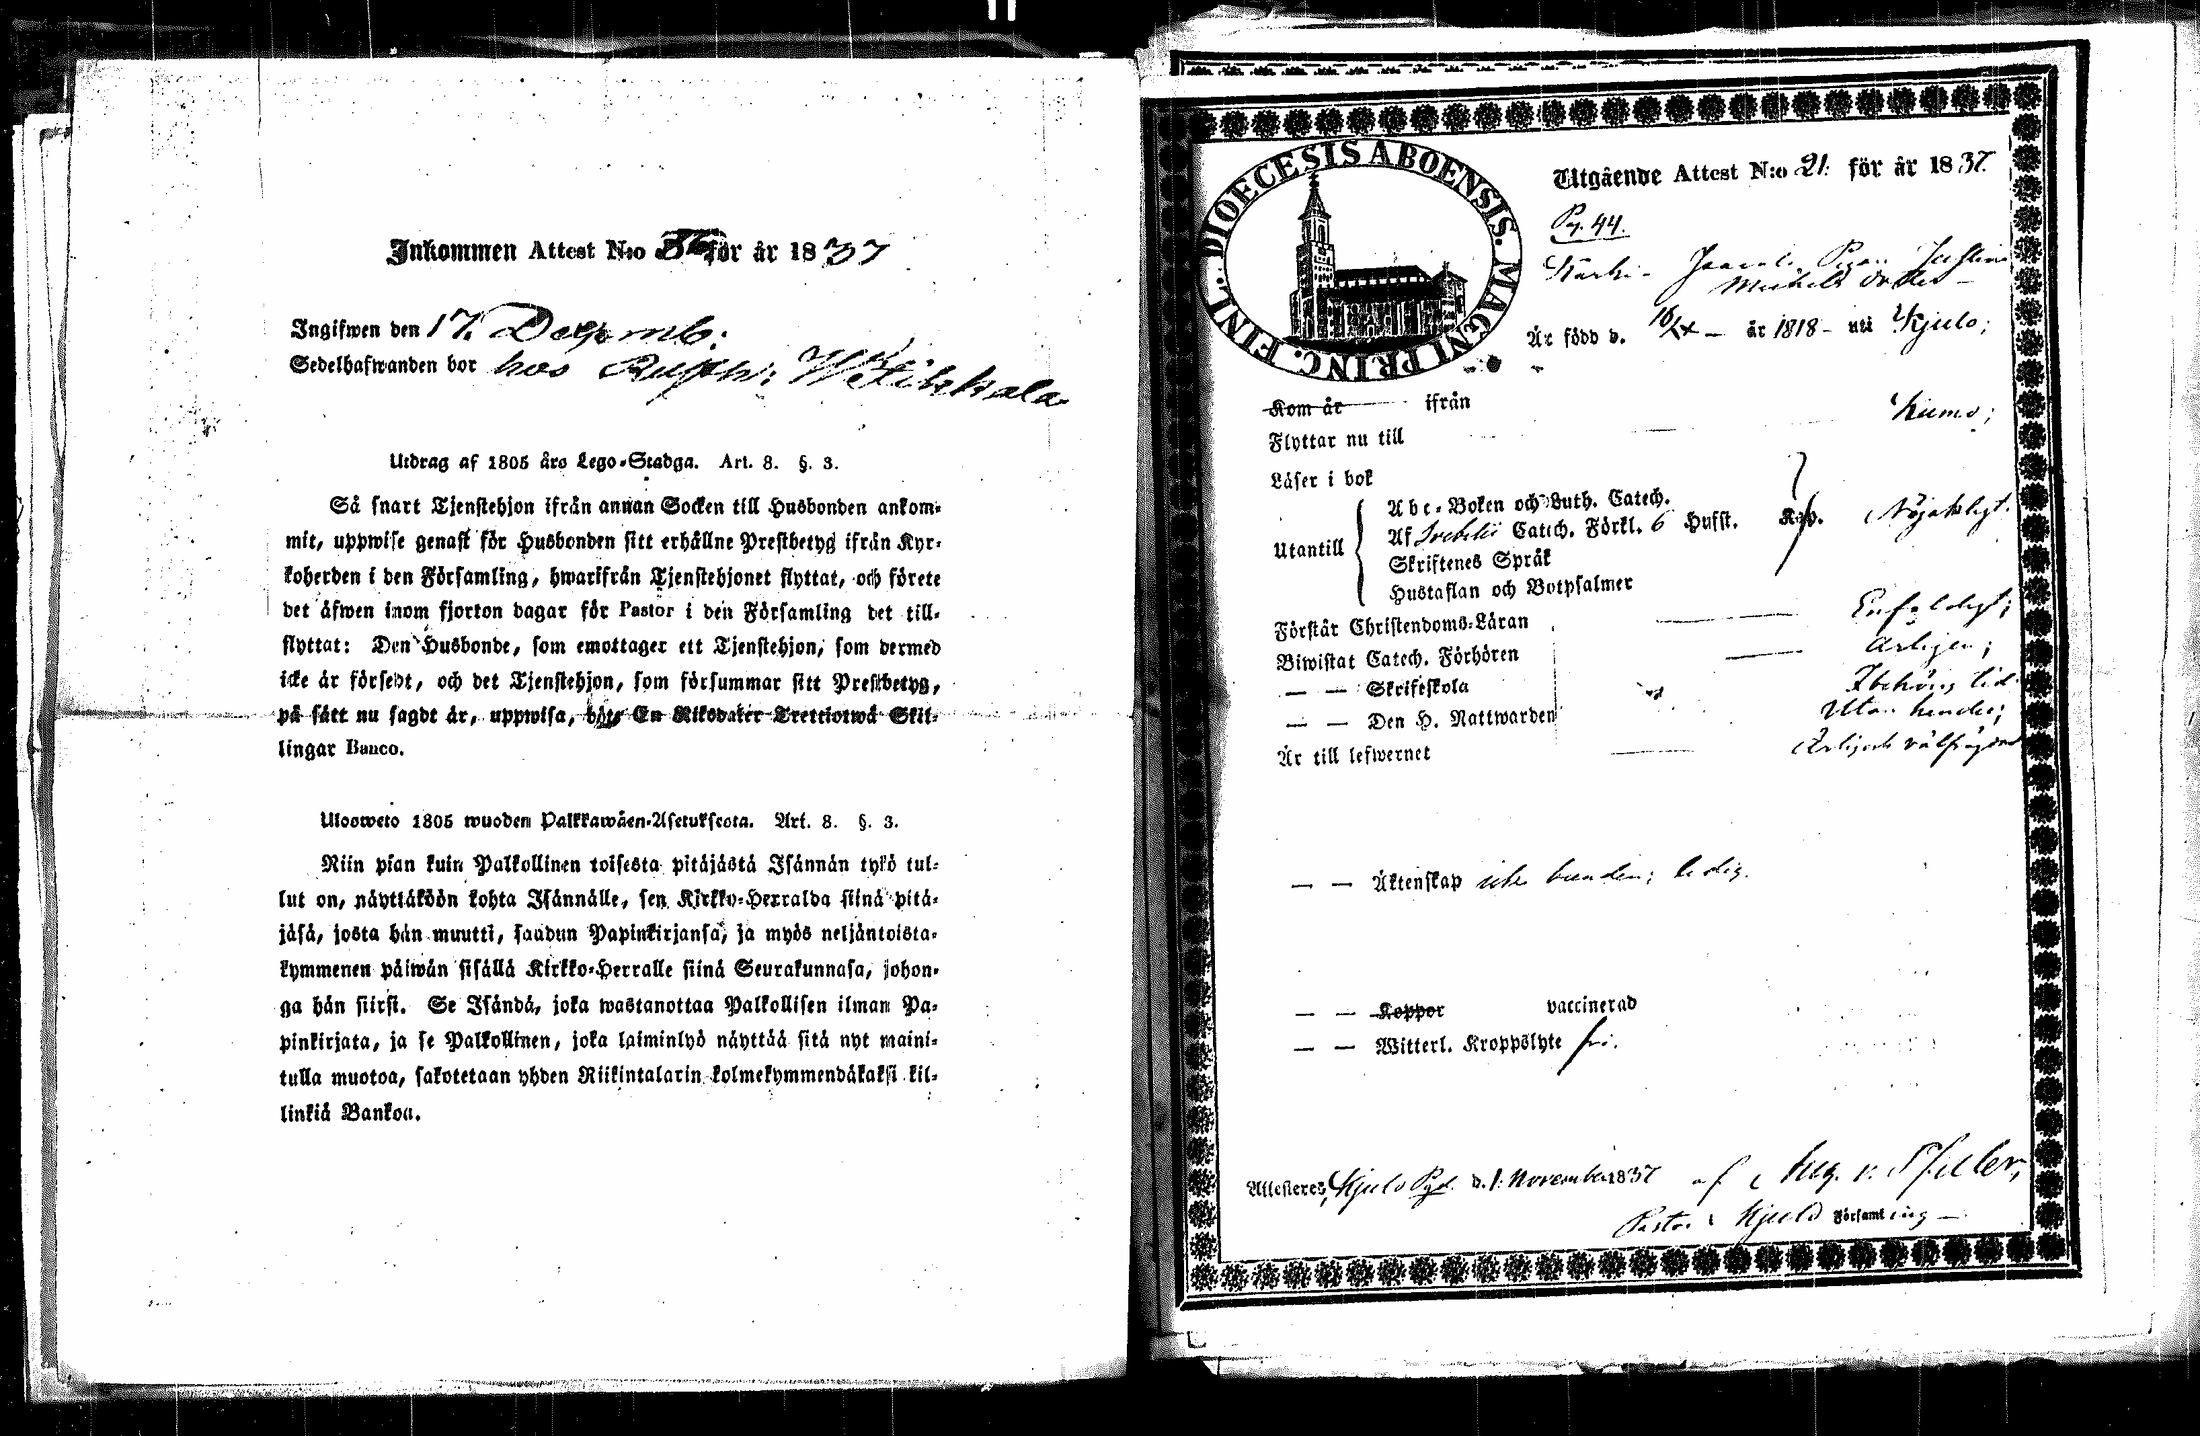 Inkommen Attest N:o 36 för år 1837
Ingifwen den 17. Decemb:
Sedelhafwanden bor hos Rusth:
Utdrag af 1805 års Lego-Stadga. Art. 8. §. 3.
Så snart Tjenstehjon ifrån annan Socken till Husbonden ankom-
mit, uppwise genast för Husbonden sitt erhållne Prestbetyg ifrån Kyr-
koherden i den Församling, hwarifrån Tjenstehjonet flyttat, och förete
det äfwen inom fjorton dagar för Pastor i den Församling det till-
flyttat: Den Husbonde, som emottager ett Tjenstehjon, som dermed
icke är försedt, och det Tjenstehjon, som försummar sitt Prestbetyg,
på sätt nu sagdt är, uppwisa, böte En Riksdaler Trettiotwå Skil-
lingar Banco.
Ulosweto 1805 wuoden Palkkawäen-Asetuksesta. Art. 8. §. 3.
Niin pian kuin Palkollinen toisesta pitäjästä Isännän tykö tul-
lut on, näyttäköön kohta Isännälle, sen Kirkko-Herralda siinä pitä-
jäsä, josta hän muutti, saadun Papinkirjansa, ja myös neljäntoista-
kymmenen päiwän sisällä Kirkko-Herralle siinä Seurakunnasa, johon-
ga hän siirsi. Se Isändä, joka wastanottaa Palkollisen ilman Pa-
pinkirjata, ja se Palkollinen, joka laiminlyö näyttää sitä nyt maini-
tulla muotoa, sakotetaan yhden Riikintalarin kolmekymmendäkaksi kil-
linkiä Bankoa.
DIOECESIS ABOENSIS. MAGNI PRINC. FINL.
Utgående Attest N:o 21. för år 1837.
Pag. 44.
Pigan Justina
Michels dotter
Är född d. 16/ - år 1818 - uti Kjulo;
Kom år ifrån
Flyttar nu till Kumo;
Läser i bok
Abc-Boken och Luth. Catech.
Utantill Af Svebelii Catech. Förkl. 6 Husst. Kap. Nöjaktigt.
Skriftenes Språk
Hustaflan och Botpsalmer
Förstår Christendoms-Läran Enfaldigt;
Biwistat Catech. Förhören Årligen;
— — Skriftskola I behörig tid
— — Den H. Nattwarden Utan hinder;
Är till lefwernet Ärlig och välfrägdad
— — Äktenskap icke bunden; ledig.
— — Koppor vaccinerad
— — Witterl. Kroppslyte fri.
Attesteres, Kjulo Pgd. d. 1. November 1837 af Aug. v. Pfaler,
Pastor i Kjulo Församling —